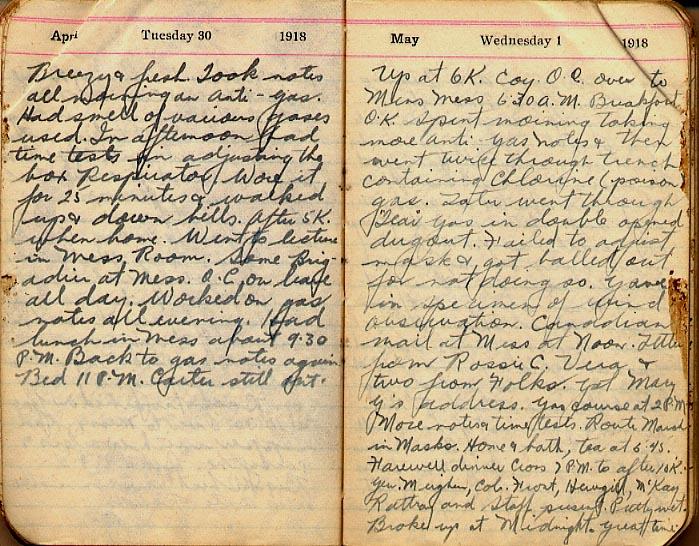 April Tuesday 30 1918
Breezy & fresh. Took notes
all morning on Anti-gas.
Had smell of various gases
used. In afternoon had
time tests in adjusting the
box Respirator. Wore it
for 25 minutes & walked
up & down hills. After 5 K.
when home. Went to lecture
in Mess Room. Some Brig-
adier at Mess. O.C. on leave
all day. Worked on gas
notes all evening. Had
lunch in Mess about 9.30
P.M. Back to gas notes again
Bed 11 P.M. Carter still out.
May Wednesday 1 1918
Up at 6 K. Coy. O.C. over to
Mens Mess 6.30 A.M. Breakfast
O.K. Spent morning taking
more anti gas notes & then
went twice through trench
containing Chlorine (poison
gas. Later went through
Tear Gas in double opened
dugout. Failed to adjust
mask & got balled out
for not doing so. Gave
in specimen of wind
observation. Canadian
mail at Mess at Noon. Letter
from Rossie C. Vera &
two from Folks. Got Mary
G's address. Gas course at 2 P.M.
More notes & time tests. Route March
in Masks. Home & bath, tea at 5.45.
Farewell dinner 7 P.M. to after 10 K.
Gen. Col. McKay
and Staff present.
Broke up at Midnight. great time.